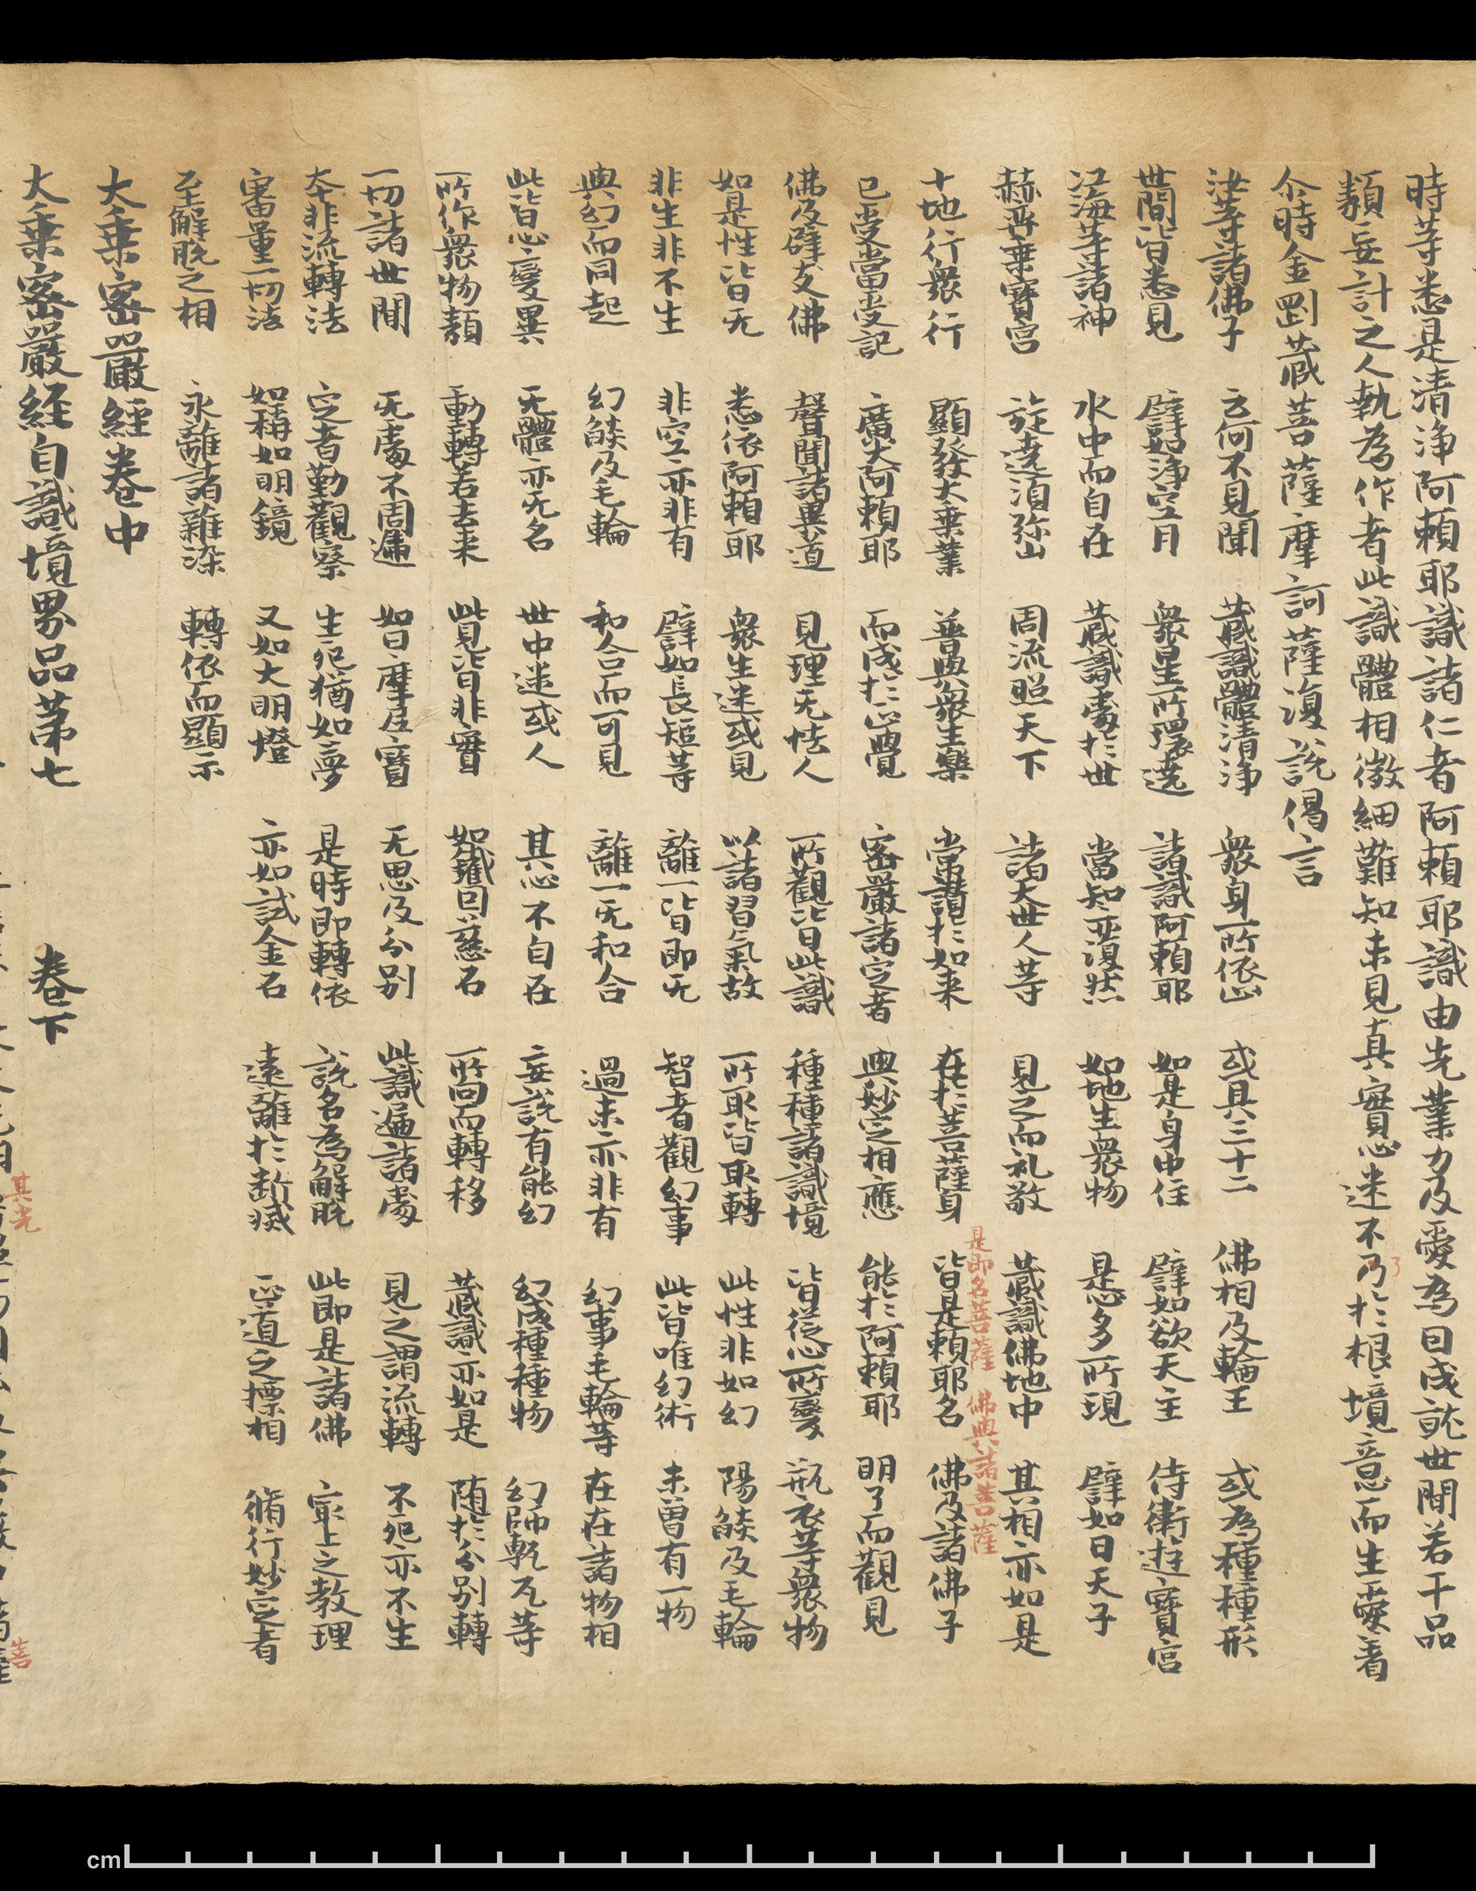 時等悉是清淨阿頼耶識諸仁者阿頼耶識由先業力及愛為因成就世間若干品
類妄計之人執為作者此識體相微細難知未見真實心迷不了於根境意而生愛著
尒時金剛藏菩薩摩訶薩復說偈言
汝等諸佛子 云何不見聞 藏識體清淨 衆身所依止 或具三十二 佛相及輪王 或為種種形
世間皆悉見 譬如淨空月 衆星所環遶 諸識阿頼耶 如是身中住 譬如欲天主 侍衛遊寶宮
江海等諸神 水中而自在 藏識處於世 當知亦復然 如地生衆物 是心多所現 譬如日天子
赫奕乘寶宮 旋遶湏弥山 周流照天下 諸天世人等 見之而礼敬 藏識佛地中 其相亦如是
是即名菩薩 佛與諸菩薩
十地行衆行 顯發大乘業 普與衆生樂 常讃於如来 在於菩薩身 皆是頼耶名 佛及諸佛子
已受當受記 廣大阿頼耶 而成於正覺 密嚴諸定者 與妙定相應 能於阿頼耶 明了而觀見
佛及辟支佛 聲聞諸異道 見理无怯人 所觀皆此識 種種諸識境 皆從心所變 瓶衣等衆物
如是性皆无 悉依阿頼耶 衆生迷或見 以諸習氣故 所取皆取轉 此性非如幻 陽燄及毛輪
非生非不生 非空亦非有 譬如長短等 離一皆即无 智者觀幻事 此皆唯幻術 未曽有一物
與幻而同起 幻燄及毛輪 和合而可見 離一无和合 過未亦非有 幻事毛輪等 在在諸物相
此皆心變異 无體亦无名 世中迷或人 其心不自在 妄說有能幻 幻成種種物 幻師甎瓦等
所作衆物類 動轉若去来 此見皆非實 如鐵因慈石 所向而轉移 藏識亦如是 随於分别轉
一切諸世間 无處不周遍 如日摩尼寶 无思及分别 此識遍諸處 見之謂流轉 不死亦不生
本非流轉法 定者勤觀察 生死猶如夢 是時即轉依 說名為解脫 此即是諸佛 最上之教理
審量一切法 如稱如明鏡 又如大明燈 亦如試金石 遠離於斷滅 正道之摽相 脩行妙定者
至解脫之相 永離諸雜染 轉依而顯示
大乘密嚴經卷中
大乘密嚴経自識境界品第七 卷下